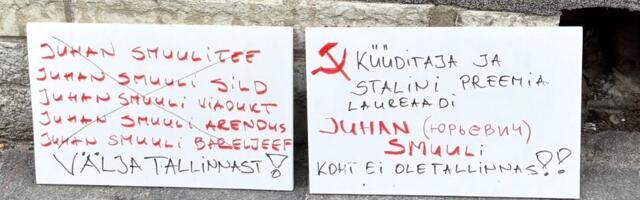 JUHAN SMUULI TEE
JUHAN SMUULI SILD
JUHAN SMUULI VIADUKT
JUHAN SMUULI ARENDUS
JUHAN SMUULI BARELJEEF
VÄLJA TALLINNAST!
KÜÜDITAJA JA
STALINI PREEMIA
LAUREAADI
JUHAN (ЮРЬЕВИЧ)
SMUULI
KOHT EI OLE TALLINNAS!!